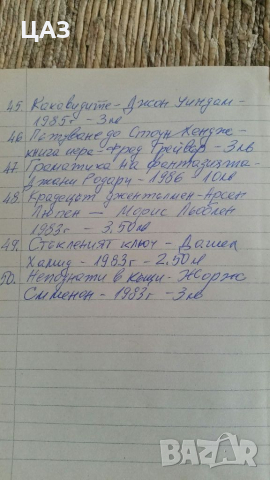 ЦАЗ
45. Какавидите - Джон Уиндам -
1985г - 3лв
46. Пътуване до Стоун Хендж -
книга игра - Фред Грейвър - 3лв
47. Граматика на фантазията -
Джани Родари - 1986 10лв
48. Крадецът джентълмен - Арсен
Люпен - Морис Льоблен
1983г - 3.50лв
49. Стъкленият ключ - Дашел
Хамид - 1983г - 2.50лв
50. Непознати в къщи - Жорж
Сименон - 1983г - 3лв
bazar